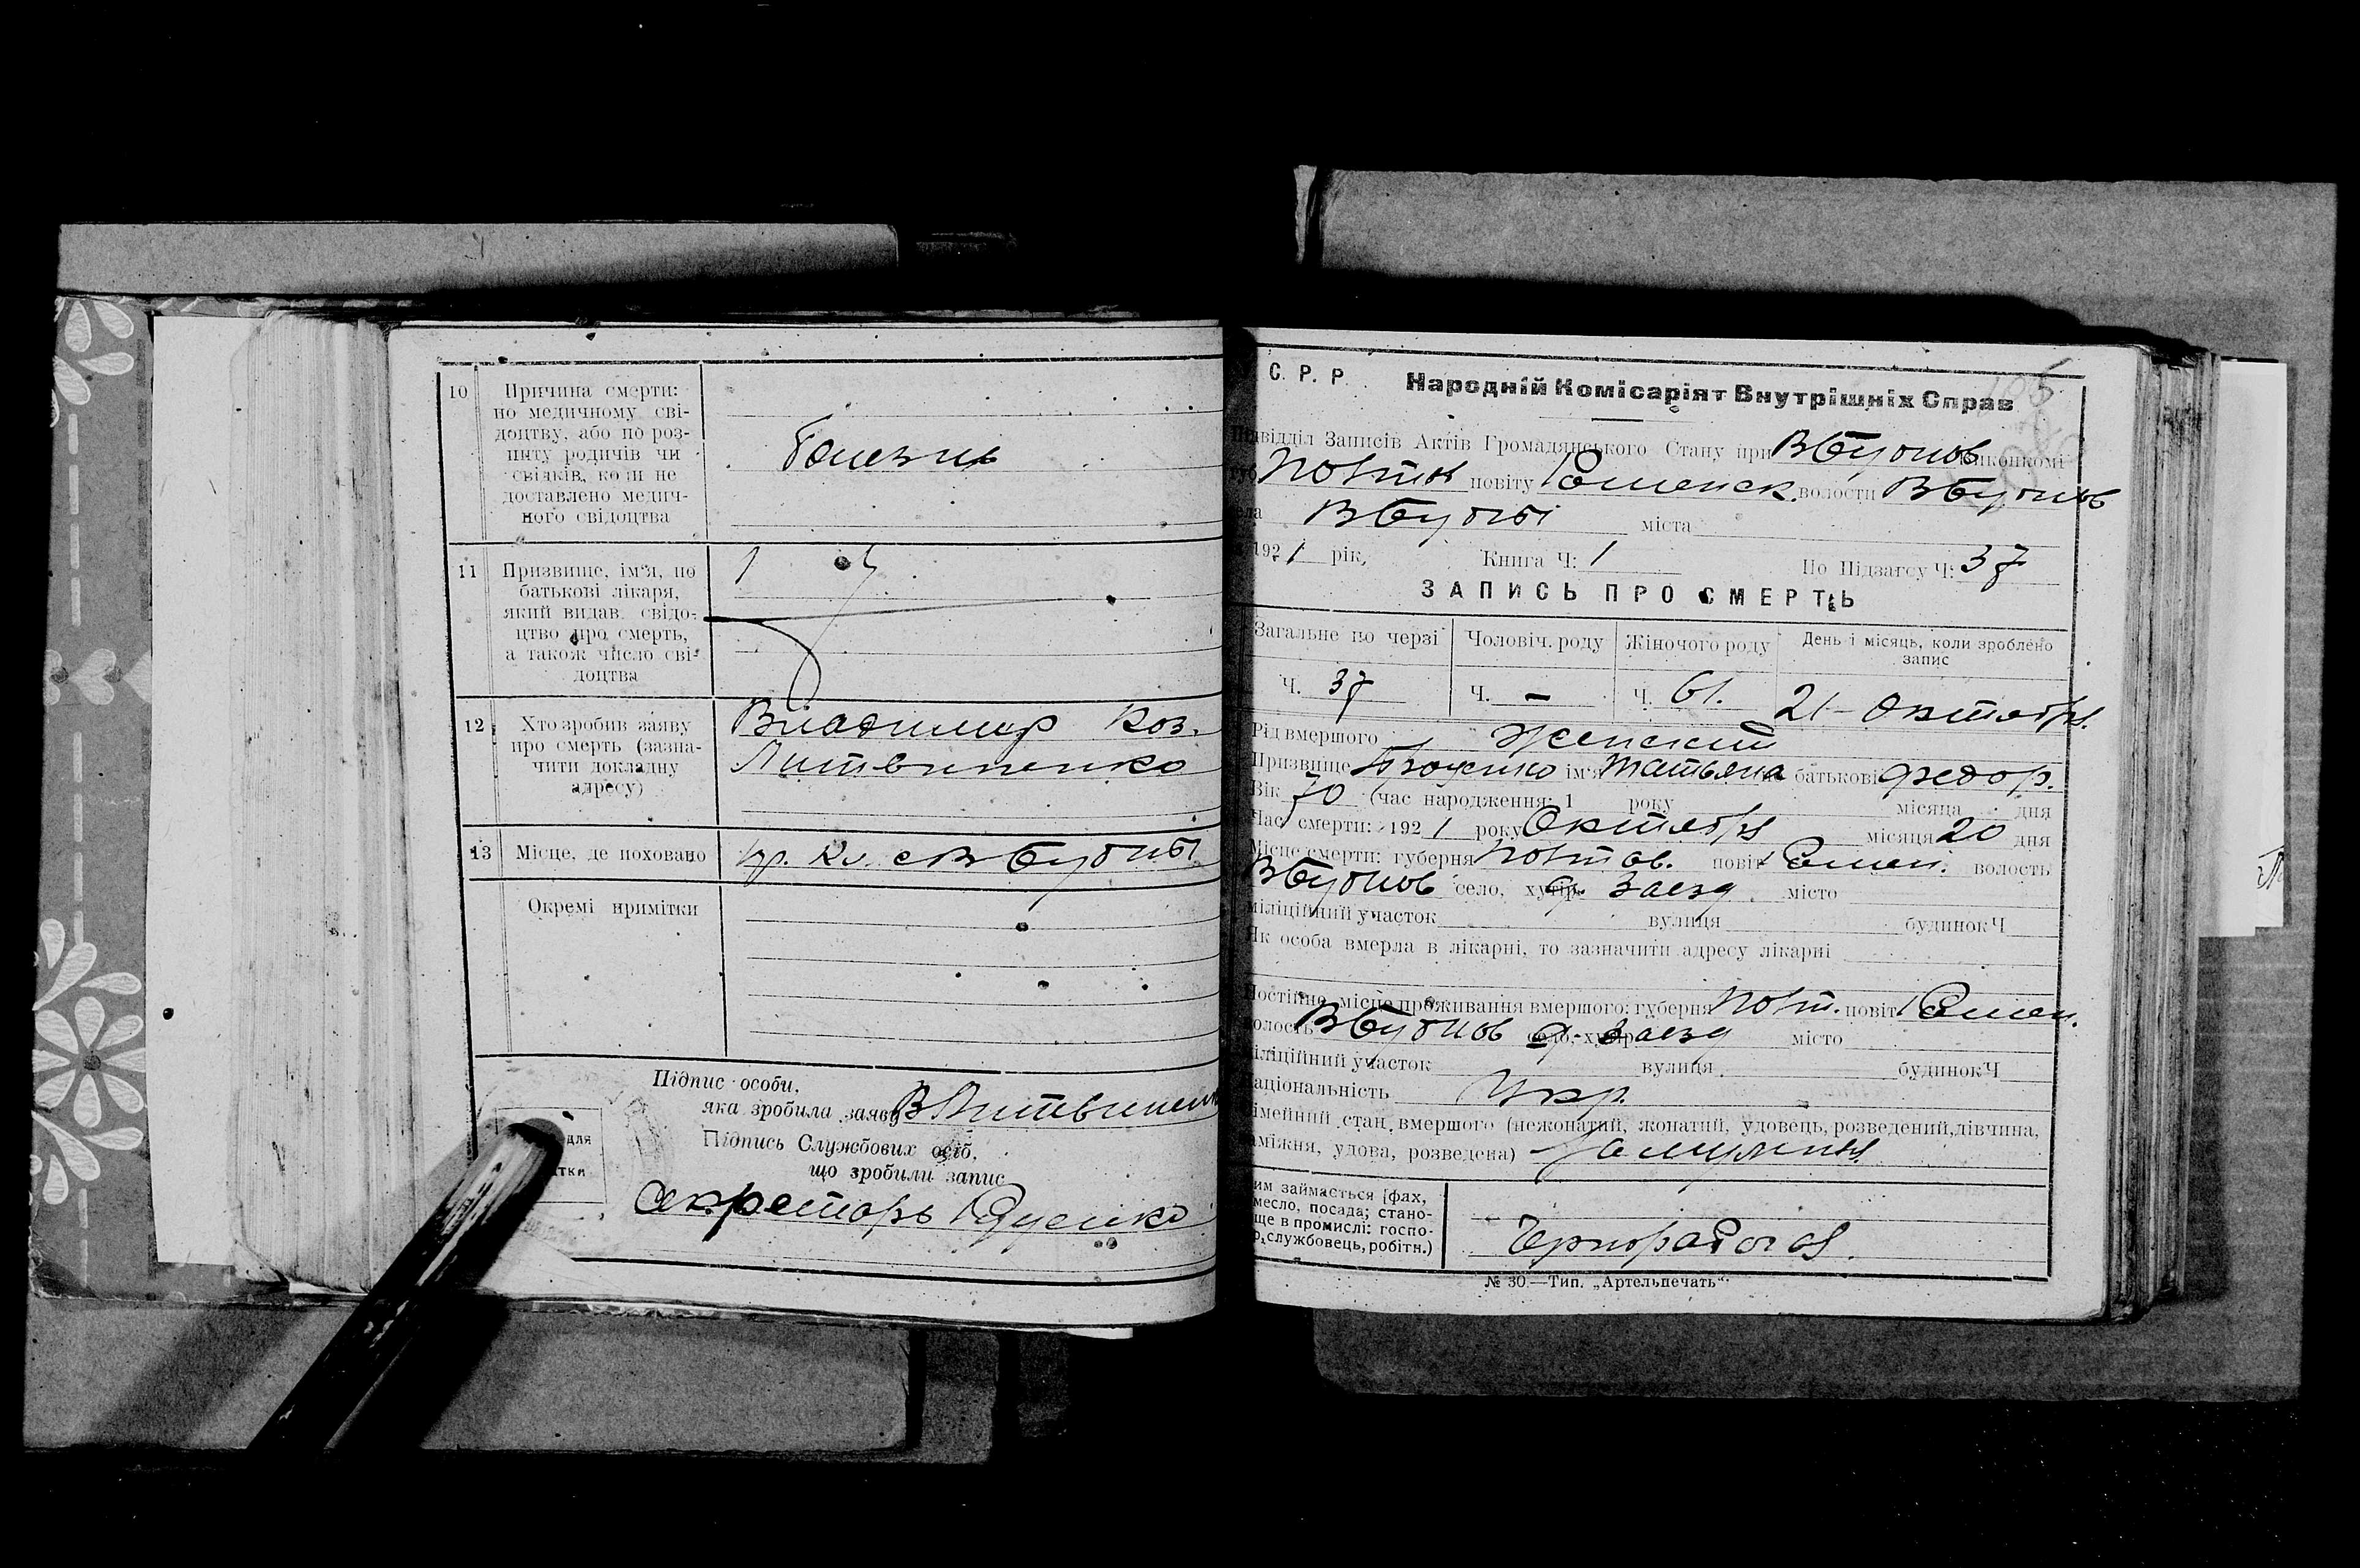 10 Причина смерти:
по медичному сві-
доцтву, або по роз-
питу родичів чи
свідків, коли не
доставлено медич-
ного свідоцтва
Болезнь
11 Призвище, ім'я, по
батькові лікаря,
який видав свідо-
цтво про смерть,
а також число сві-
доцтва
12 Хто зробив заяву
про смерть (зазна-
чити докладну
адресу)
Владимир Коз.
Литвиненко
13 Місце, де поховано
Окремі примітки
Підпис особи,
яка зробила заяву ВЛитвиненк
Підпись Службових осіб,
що зробили запис
Секретарь
для
тки
С. Р. Р
Народній Комісаріят Внутрішніх Справ
відділ Записів Актів Громадянського Стану при виконкомі
Полтав повіту Роменск. волости
міста
1921 рік, Книга Ч: 1 По Підзагсу Ч: 37
ЗАПИСЬ ПРО СМЕРТЬ
Загальне по черзі Чоловіч. роду Жіночого роду День і місяць, коли зроблено запис
Ч. 37 Ч. – Ч. 61. 21 – Октября.
Рід вмершого Женский
Призвище ім'я Татьяна батькові Федор.
Вік 70 (час народження: 1 року місяца дня
Час смерти: 1921 року Октября місяця 20 дня
Місце смерти: губерня Полтав. повіт Ромен. волость
село, хутір Заезд місто
міліційний участок вулиця будинок Ч
Як особа вмерла в лікарні, то зазначити адресу лікарні
Постійне місце проживання вмершого: губерня Полт. повіт Ромен.
волость село, хутір Заезд місто
міліційний участок вулиця будинок Ч
національність Укр.
сімейний стан вмершого (нежонатий, жонатий, удовець, розведений, дівчина,
заміжня, удова, розведена) Замужняя
им займається [фах,
месло, посада; стано-
ще в промислі: госпо-
р, службовець, робітн.)
Чернорабочая.
№ 30.—Тип. „Артельпечать"